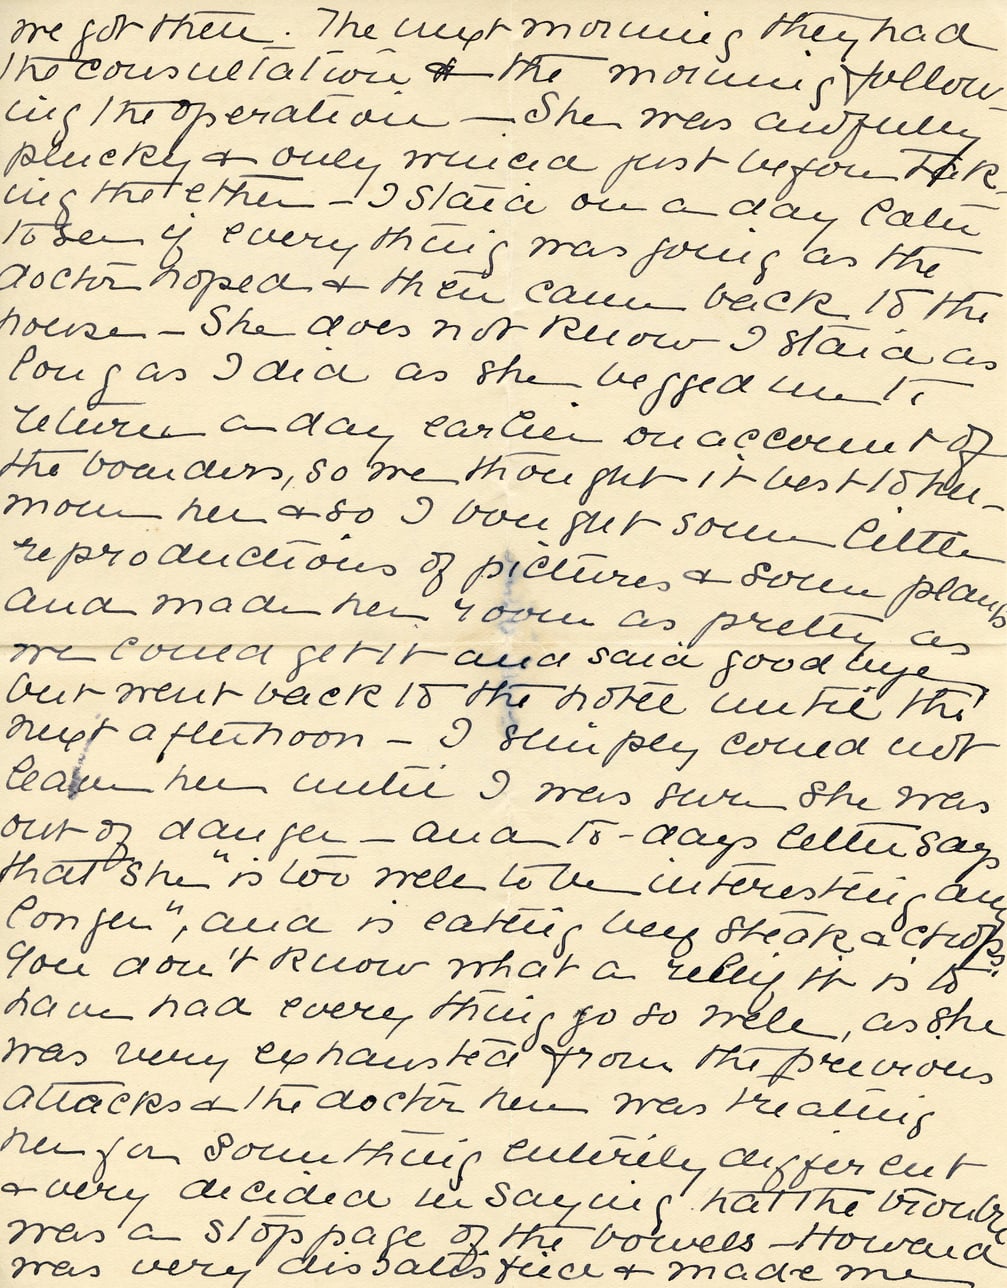 we got there. The next morning they had
the consultation & the morning follow-
ing the operation — She was awfully
plucky & only winced just before tak
ing the ether — I staid on a day later
to see if everything was going as the
doctor hoped & then came back to the
house — She does not know I staid as
long as I did as she begged me to
return a day earlier on account of
the boarders, so we thought it best to hu-
mour her & so I bought some little
reproductions of pictures & some plants
and made her room as pretty as
we could get it and said good bye
but went back to the hotel until the
next afternoon — I simply could not
leave her until I was sure she was
out of danger — and to-days letter says
that she "is too well to be interesting any
longer", and is eating beef steak & chops
You don't know what a relief it is to
have had every thing go so well, as she
was very exhausted from the previous
attacks & the doctor here was treating
her for something entirely different
& very decided in saying that the trouble
was a stoppage of the bowels — Howard
was very dissatisfied & made me